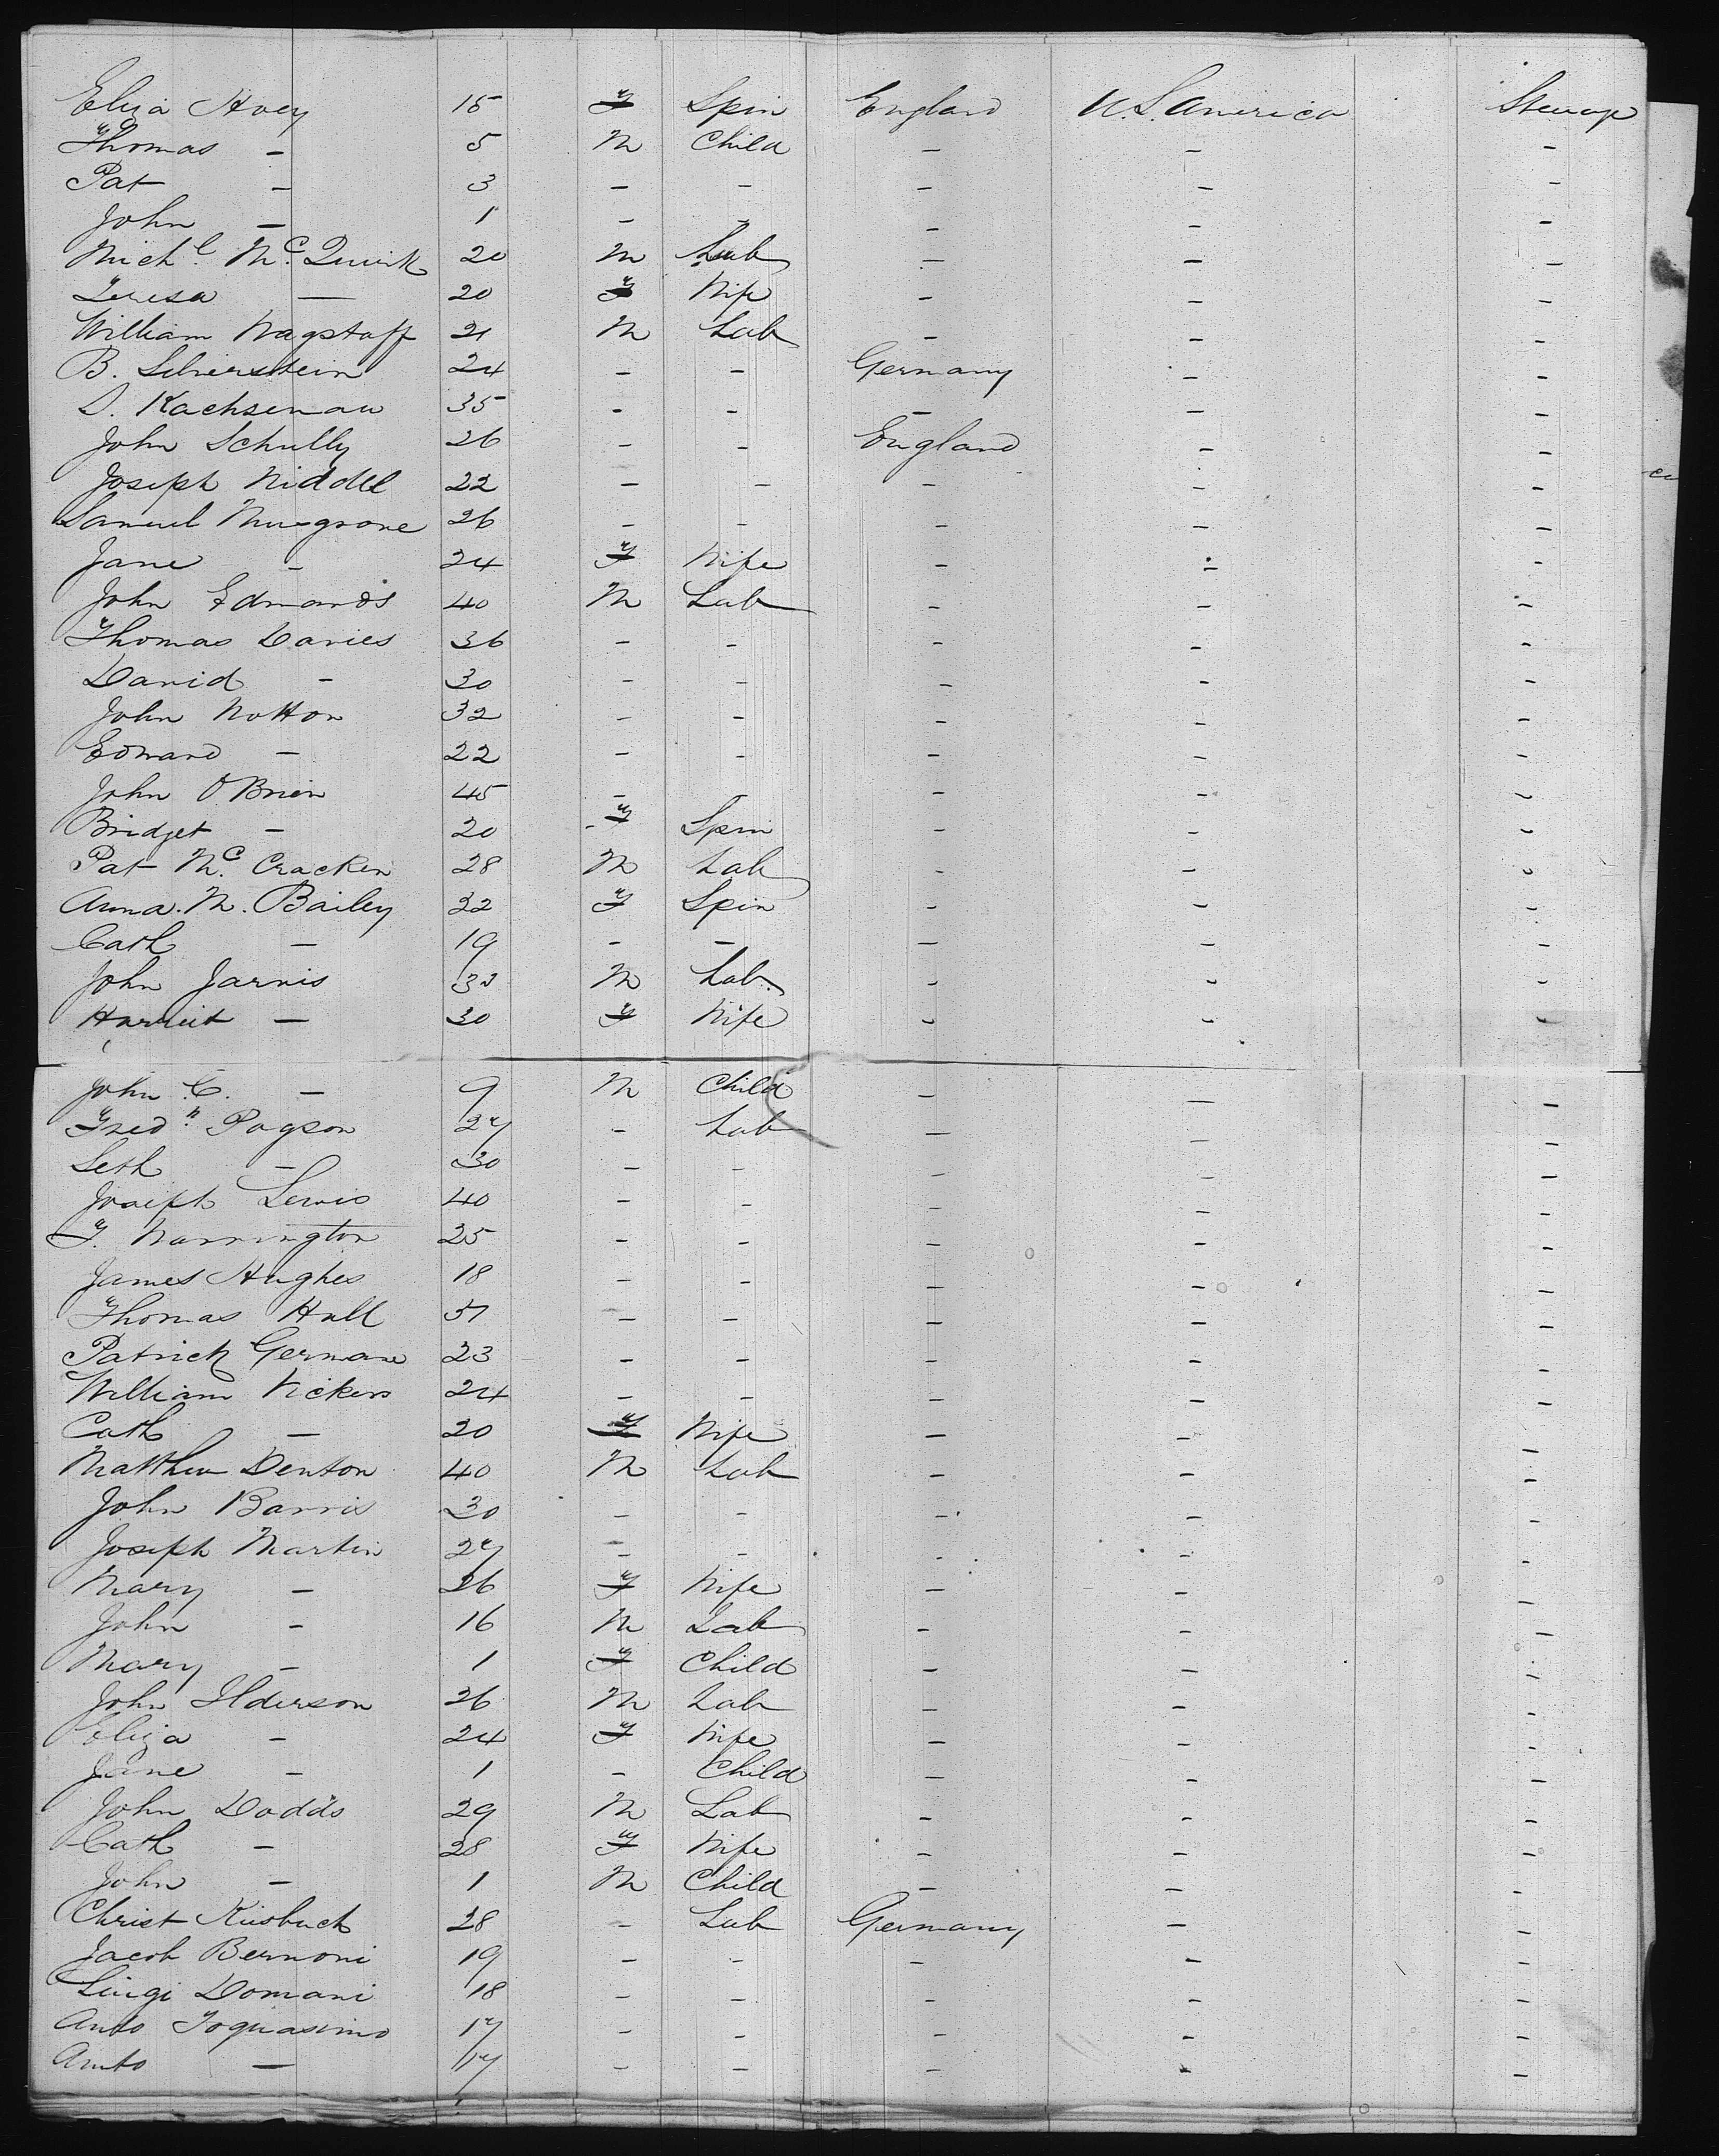 Eliza Hoey 15 F Spin England U.S. America Steerage
Thomas - 5 M Child - - -
Pat - 3 - - - - -
John - 1 - - - - -
Michl McQuirk 20 M Lab - - -
Teresa - 20 F Wife - - -
William Wagstaff 21 M Lab - - -
B. Silverstein 24 - - Germany - -
S. Kachsenau 35 - - - - -
John Schully 26 - - England - -
Joseph Riddel 22 - - - - -
Samuel Musgrove 26 - - - - -
Jane - 24 F Wife - - -
John Edwards 40 M Lab - - -
Thomas Davies 36 - - - - -
David - 30 - - - - -
John Notton 32 - - - - -
Edward - 22 - - - - -
John O'Brien 45 - - - - -
Bridget - 20 F Spin - - -
Pat McCracken 28 M Lab - - -
Anna. M. Bailey 22 F Spin - - -
Cath - 19 - - - - -
John Jarvis 32 M Lab. - - -
Harriet - 30 F Wife - - -
John C. - 9 M Child - - -
Fredk Pogson 27 - Lab - - -
Seth - 30 - - - - -
Joseph Lewis 40 - - - - -
F. Warrington 25 - - - - -
James Hughes 18 - - - - -
Thomas Hall 31 - - - - -
Patrick German 23 - - - - -
William Vickers 24 - - - - -
Cath - 20 F Wife - - -
Matthew Denton 40 M Lab - - -
John Barris 30 - - - - -
Joseph Martin 27 - - - - -
Mary - 26 F Wife - - -
John - 16 M Lab - - -
Mary - 1 F Child - - -
John Ilderson 26 M Lab - - -
Eliza - 24 F Wife - - -
Jane - 1 - Child - - -
John Dodds 29 M Lab - - -
Cath - 28 F Wife - - -
John - 1 M Child - - -
Christ Kiisbuch 28 - Lab Germany - -
Jacob Bernoni 19 - - - - -
Luigi Domani 18 - - - - -
Anto Toquasimo 17 - - - - -
Anto - 17 - - - - -